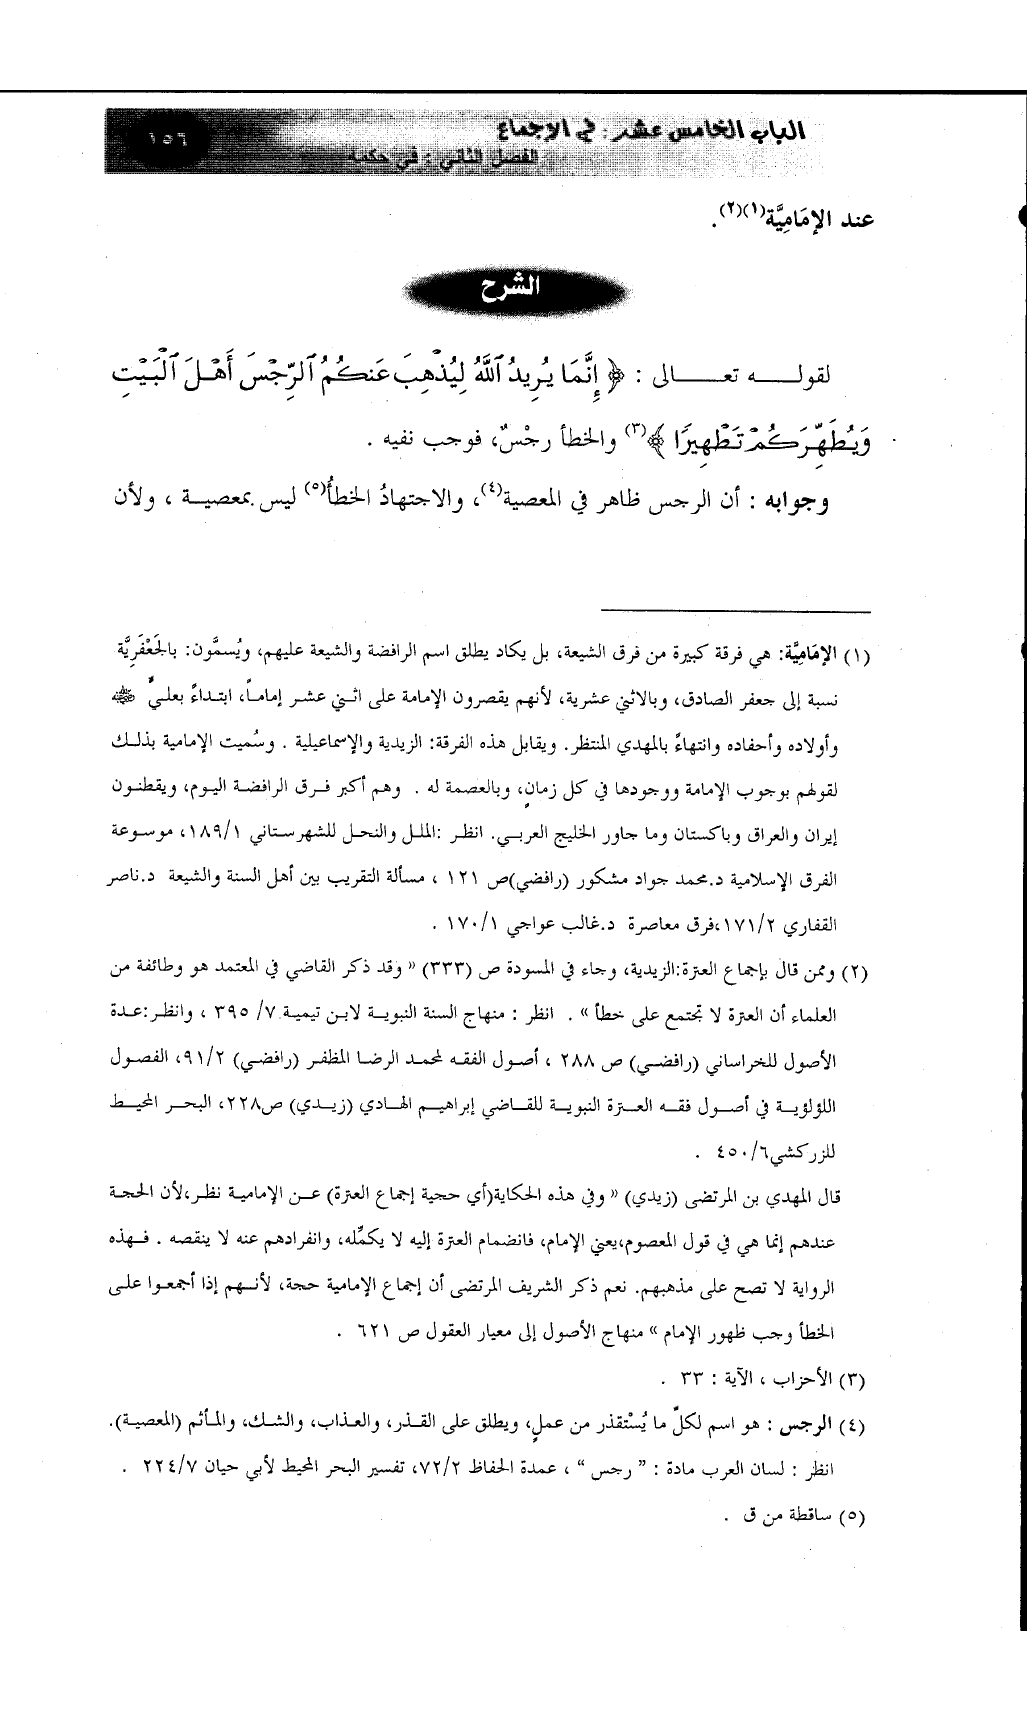 الباب الخامس عشر : في الإجماع
١٥٦
الفصل الثاني : في حكمه
عند الإمَامِيَّة(١)(٢).
الشرح
لقولـــه تعـــالى : ﴿ إِنَّمَا يُرِيدُ ٱللَّهُ لِيُذْهِبَ عَنكُمُ ٱلرِّجْسَ أَهْلَ ٱلْبَيْتِ
وَيُطَهِّرَكُمْ تَطْهِيرًا ﴾(٣) والخطأ رجْسٌ، فوجب نفيه .
وجوابه : أن الرجس ظاهر في المعصية(٤)، والاجتهادُ الخطأُ(٥) ليس بمعصيـة ، ولأن
(١) الإمَامِيَّة: هي فرقة كبيرة من فرق الشيعة، بل يكاد يطلق اسم الرافضة والشيعة عليهم، ويُسمَّون: بالجَعْفَرِيَّة
نسبة إلى جعفر الصادق، وبالاثني عشرية، لأنهم يقصرون الإمامة على اثـني عشـر إمامـاً، ابتـداءً بعليٍّ ﷺ
وأولاده وأحفاده وانتهاءً بالمهدي المنتظر. ويقابل هذه الفرقة: الزيدية والإسماعيلية . وسُميت الإمامية بذلـك
لقولهم بوجوب الإمامة ووجودها في كل زمانٍ، وبالعصمة له . وهم أكبر فـرق الرافضـة اليـوم، ويقطنـون
إيران والعراق وباكستان وما جاور الخليج العربـي. انظـر :الملـل والنحـل للشهرستاني ١٨٩/١، موسـوعة
الفرق الإسلامية د.محمد جواد مشكور (رافضي)ص ١٢١ ، مسألة التقريب بين أهل السنة والشيعة د.ناصر
القفاري ١٧١/٢،فرق معاصرة د.غالب عواجي ١٧٠/١ .
(٢) وممن قال بإجماع العترة:الزيدية، وجاء في المسودة ص (٣٣٣) « وقد ذكر القاضي في المعتمد هو وطائفة من
العلماء أن العترة لا تجتمع على خطأ » . انظر : منهاج السنة النبويـة لابـن تيميـة ٧/ ٣٩٥ ، وانظـر:عـدة
الأصول للخراساني (رافضـي) ص ٢٨٨ ، أصـول الفقـه لمحمـد الرضـا المظفـر (رافضـي) ٩١/٢، الفصـول
اللؤلؤيـة في أصـول فقـه العـترة النبويـة للقـاضي إبراهيـم الهـادي (زيـدي) ص٢٢٨، البحـر المحيـط
للزركشي٤٥٠/٦ .
قال المهدي بن المرتضى (زيدي) « وفي هذه الحكاية(أي حجية إجماع العترة) عـن الإماميـة نظـر،لأن الحجـة
عندهم إنما هي في قول المعصوم،يعني الإمام، فانضمام العترة إليه لا يكمِّله، وانفرادهم عنه لا ينقصه . فـهذه
الرواية لا تصح على مذهبهم. نعم ذكر الشريف المرتضى أن إجماع الإمامية حجة، لأنـهم إذا أجمعـوا علـى
الخطأ وجب ظهور الإمام » منهاج الأصول إلى معيار العقول ص ٦٢١ .
(٣) الأحزاب ، الآية : ٣٣ .
(٤) الرجس : هو اسم لكلِّ ما يُسْتقذر من عملٍ، ويطلق على القـذر، والعـذاب، والشـك، والمـأثم (المعصيـة).
انظر : لسان العرب مادة : ” رجس “ ، عمدة الحفاظ ٧٢/٢، تفسير البحر المحيط لأبي حيان ٢٢٤/٧ .
(٥) ساقطة من ق .